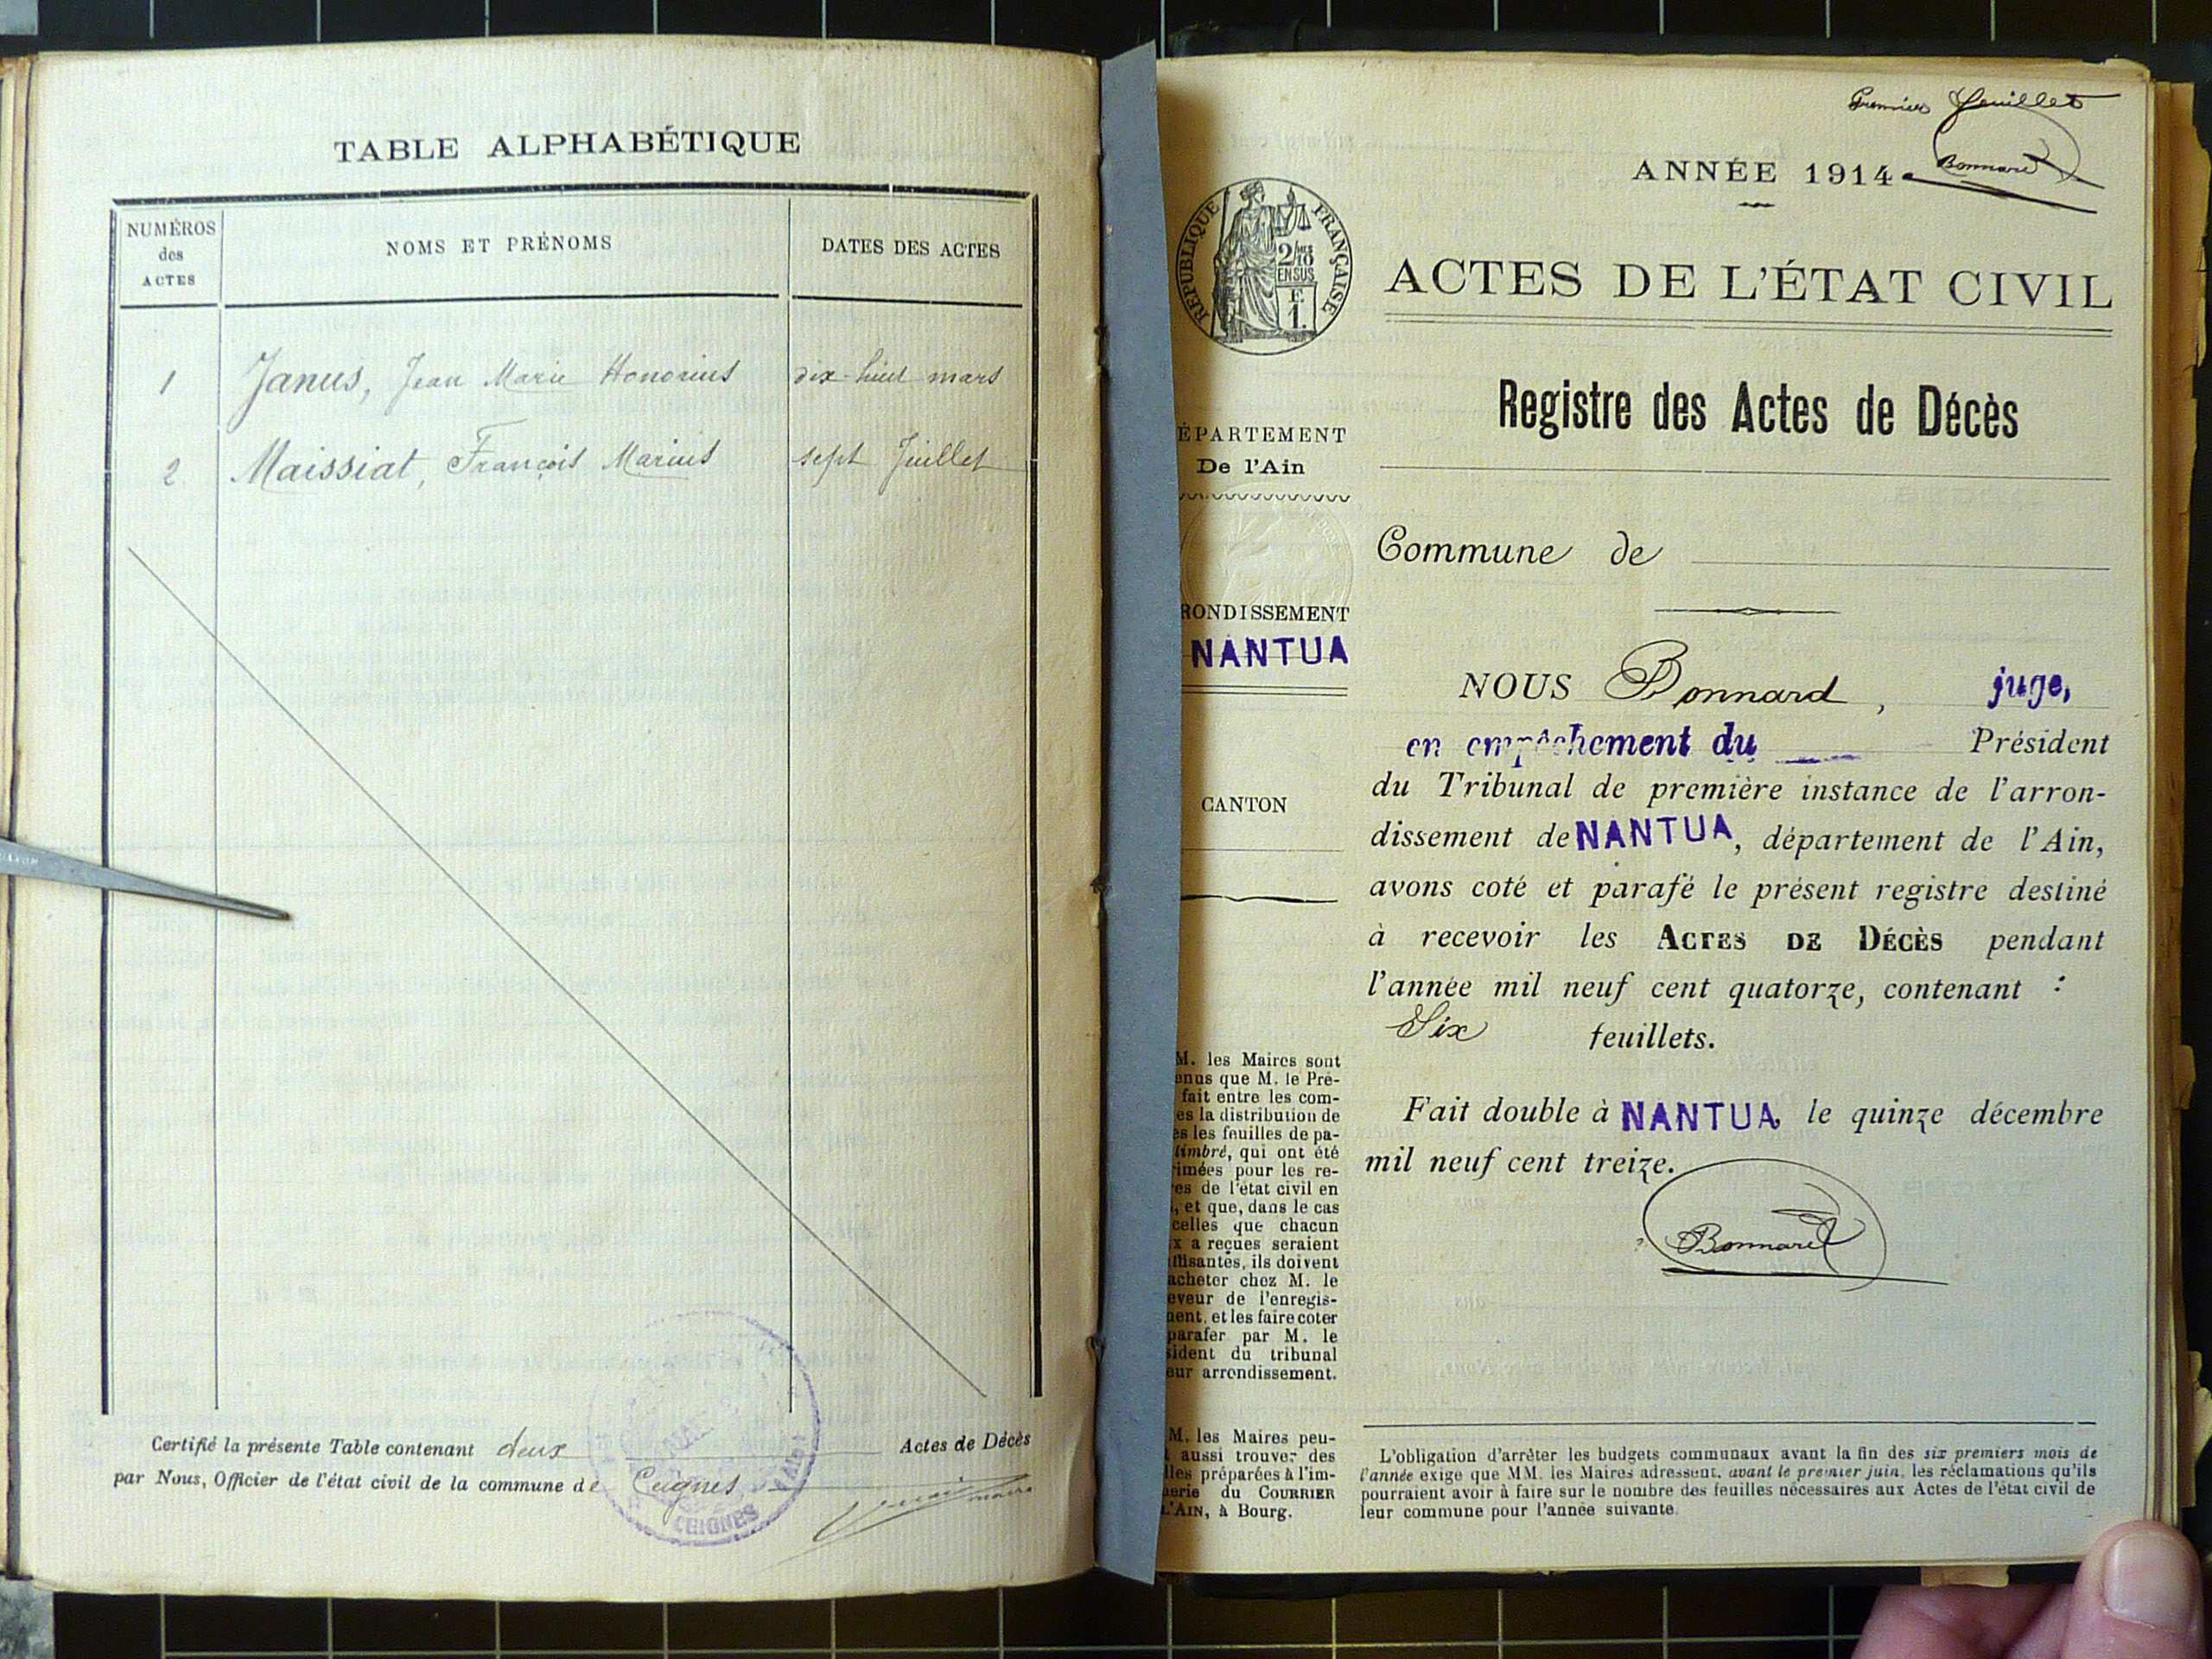 TABLE ALPHABÉTIQUE
NUMÉROS
des
ACTES
NOMS ET PRÉNOMS
DATES DES ACTES
1 Janus, Jean Marie Honorius dix-huit mars
2 Maissiat, François Marius sept Juillet
Certifié la présente Table contenant deux Actes de Décès
par Nous, Officier de l'état civil de la commune de Ceignes
maire
CEIGNES
Premier feuillet
Bonnard
ANNÉE 1914
RÉPUBLIQUE FRANÇAISE
2/10
EN SUS
F.
1.
ACTES DE L'ÉTAT CIVIL
Registre des Actes de Décès
ÉPARTEMENT
De l'Ain
RONDISSEMENT
NANTUA
CANTON
Commune de
NOUS Bonnard, juge,
en empêchement du Président
du Tribunal de première instance de l'arron-
dissement de NANTUA, département de l'Ain,
avons coté et parafé le présent registre destiné
à recevoir les ACTES DE DÉCÈS pendant
l'année mil neuf cent quatorze, contenant :
Six feuillets.
Fait double à NANTUA, le quinze décembre
mil neuf cent treize.
Bonnard
M. les Maires sont
enus que M. le Pré-
fait entre les com-
es la distribution de
es les feuilles de pa-
timbré, qui ont été
imées pour les re-
es de l'état civil en
, et que, dans le cas
celles que chacun
x a reçues seraient
ffisantes, ils doivent
acheter chez M. le
eveur de l'enregis-
ment, et les faire coter
parafer par M. le
sident du tribunal
eur arrondissement.
M. les Maires peu-
t aussi trouver des
lles préparées à l'im-
merie du COURRIER
L'AIN, à Bourg.
L'obligation d'arrêter les budgets communaux avant la fin des six premiers mois de
l'année exige que MM. les Maires adressent, avant le premier juin, les réclamations qu'ils
pourraient avoir à faire sur le nombre des feuilles nécessaires aux Actes de l'état civil de
leur commune pour l'année suivante.